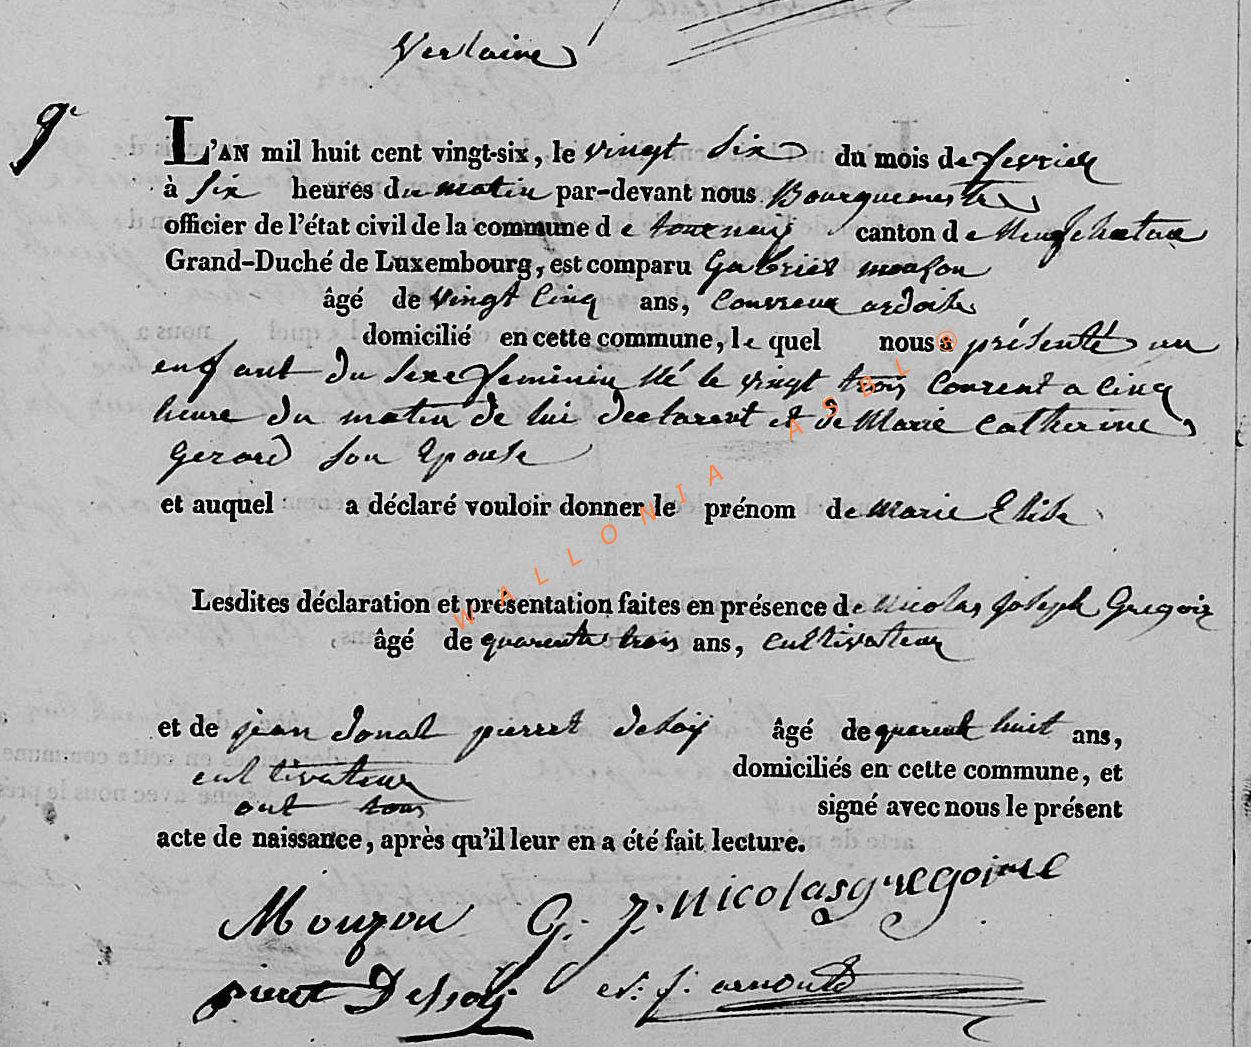 Verlaine
9e
L'AN mil huit cent vingt-six, le vingt Six du mois de fevrier
à Six heures du matin par-devant nous Bourguemestre
officier de l'état civil de la commune de tournay canton de Neufchateau
Grand-Duché de Luxembourg, est comparu Gabriel
âgé de vingt Cinq ans, Couvreur ardoise
domicilié en cette commune, le quel nous a présenté un
enfant du Sexe feminin Né le vingt trois Courent a Cinq
heure du matin de lui declarent et de Marie Catherine
Gerard Son Epouse
et auquel a déclaré vouloir donner le prénom de Marie Elise
Lesdites déclaration et présentation faites en présence de Nicolas Joseph Gregoir
âgé de quarente trois ans, cultivateur
et de jean donat pierret âgé de quarent huit ans,
cultivateur domiciliés en cette commune, et
ont tous signé avec nous le présent
acte de naissance, après qu'il leur en a été fait lecture.
Mouzon G. J. Nicolas gregoire
pierret Dessoÿ
WALLONIA ASBL ®